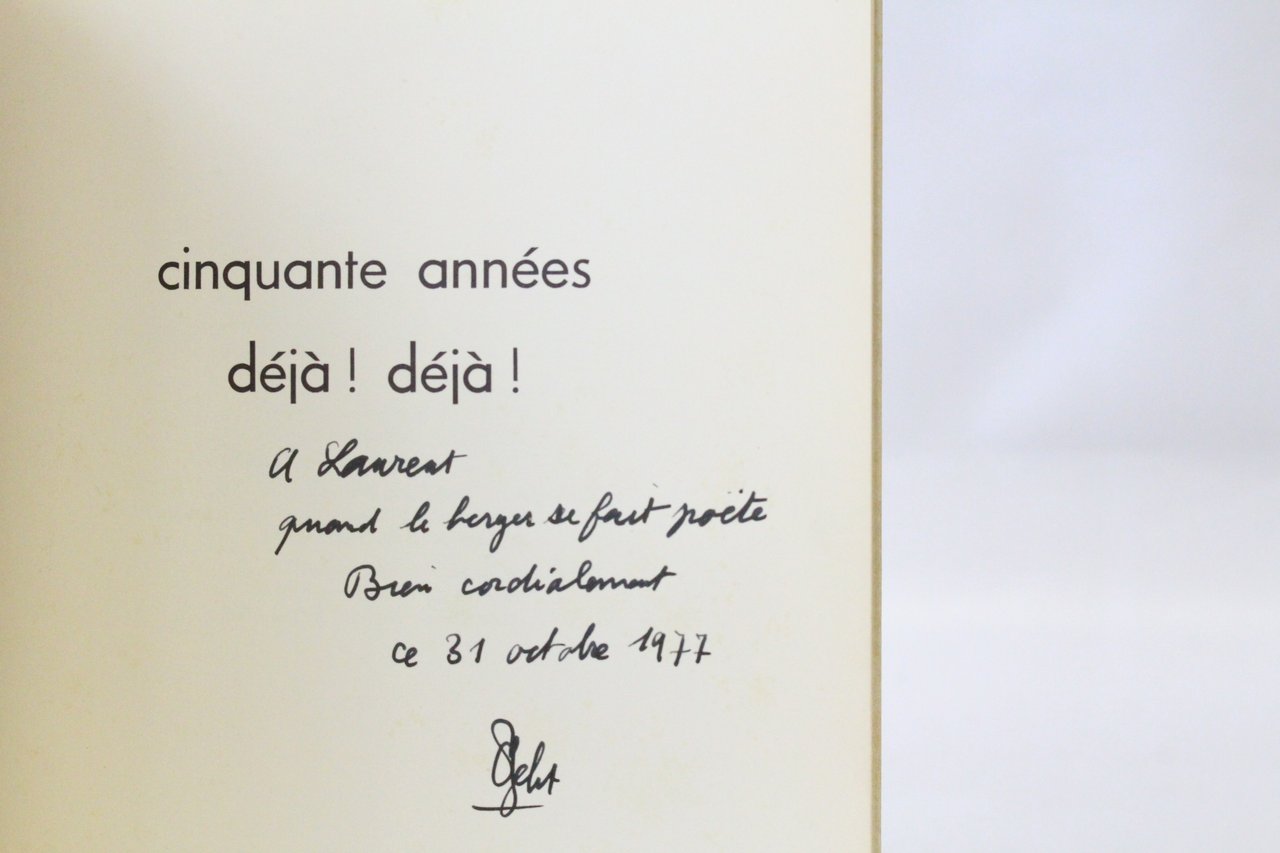 cinquante années
déjà ! déjà !
A Laurent
quand le berger se fait poëte
Bien cordialement
ce 31 octobre 1977